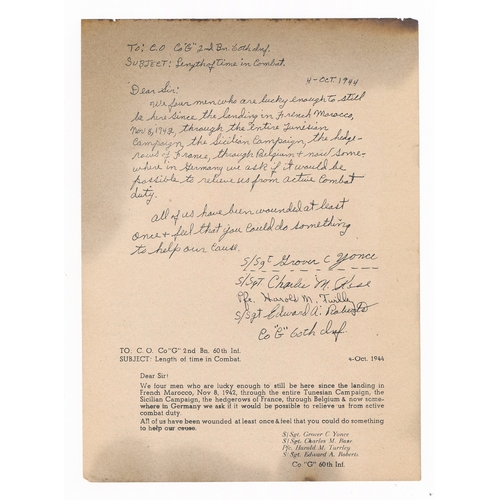 TO: C.O. Co "G" 2nd Bn. 60th Inf.
SUBJECT: Length of time in Combat.
4-OCT. 1944
Dear Sir:
We four men who are lucky enough to still
be here since the landing in French Marocco,
Nov 8, 1942, through the entire Tunesian
Campaign, the Sicilian Campaign, the hedge-
rows of France, through Belgium & now some-
where in Germany we ask if it would be
possible to relieve us from active Combat
duty.
All of us have been wounded at least
once & feel that you could do something
to help our cause.
S/Sgt Grover C Yonce
S/Sgt. Charles M. Rase
Pfc. Harold M.
S/Sgt Edward A. Roberts
Co "G" 60th Inf.
TO: C. O. Co "G" 2nd Bn. 60th Inf.
SUBJECT: Length of time in Combat.
4-Oct. 1944
Dear Sir!
We four men who are lucky enough to still be here since the landing in
French Marocco, Nov 8, 1942, through the entire Tunesian Campaign, the
Sicilian Campaign, the hedgerows of France, through Belgium & now some-
where in Germany we ask if it would be possible to relieve us from active
combat duty.
All of us have been wounded at least once & feel that you could do something
to help our cause.
S/Sgt. Grocer C Yonce
S/Sgt. Charles M. Rase
Pfc. Harold M. Turrley
S/Sgt. Edward A. Roberts
Co "G" 60th Inf.